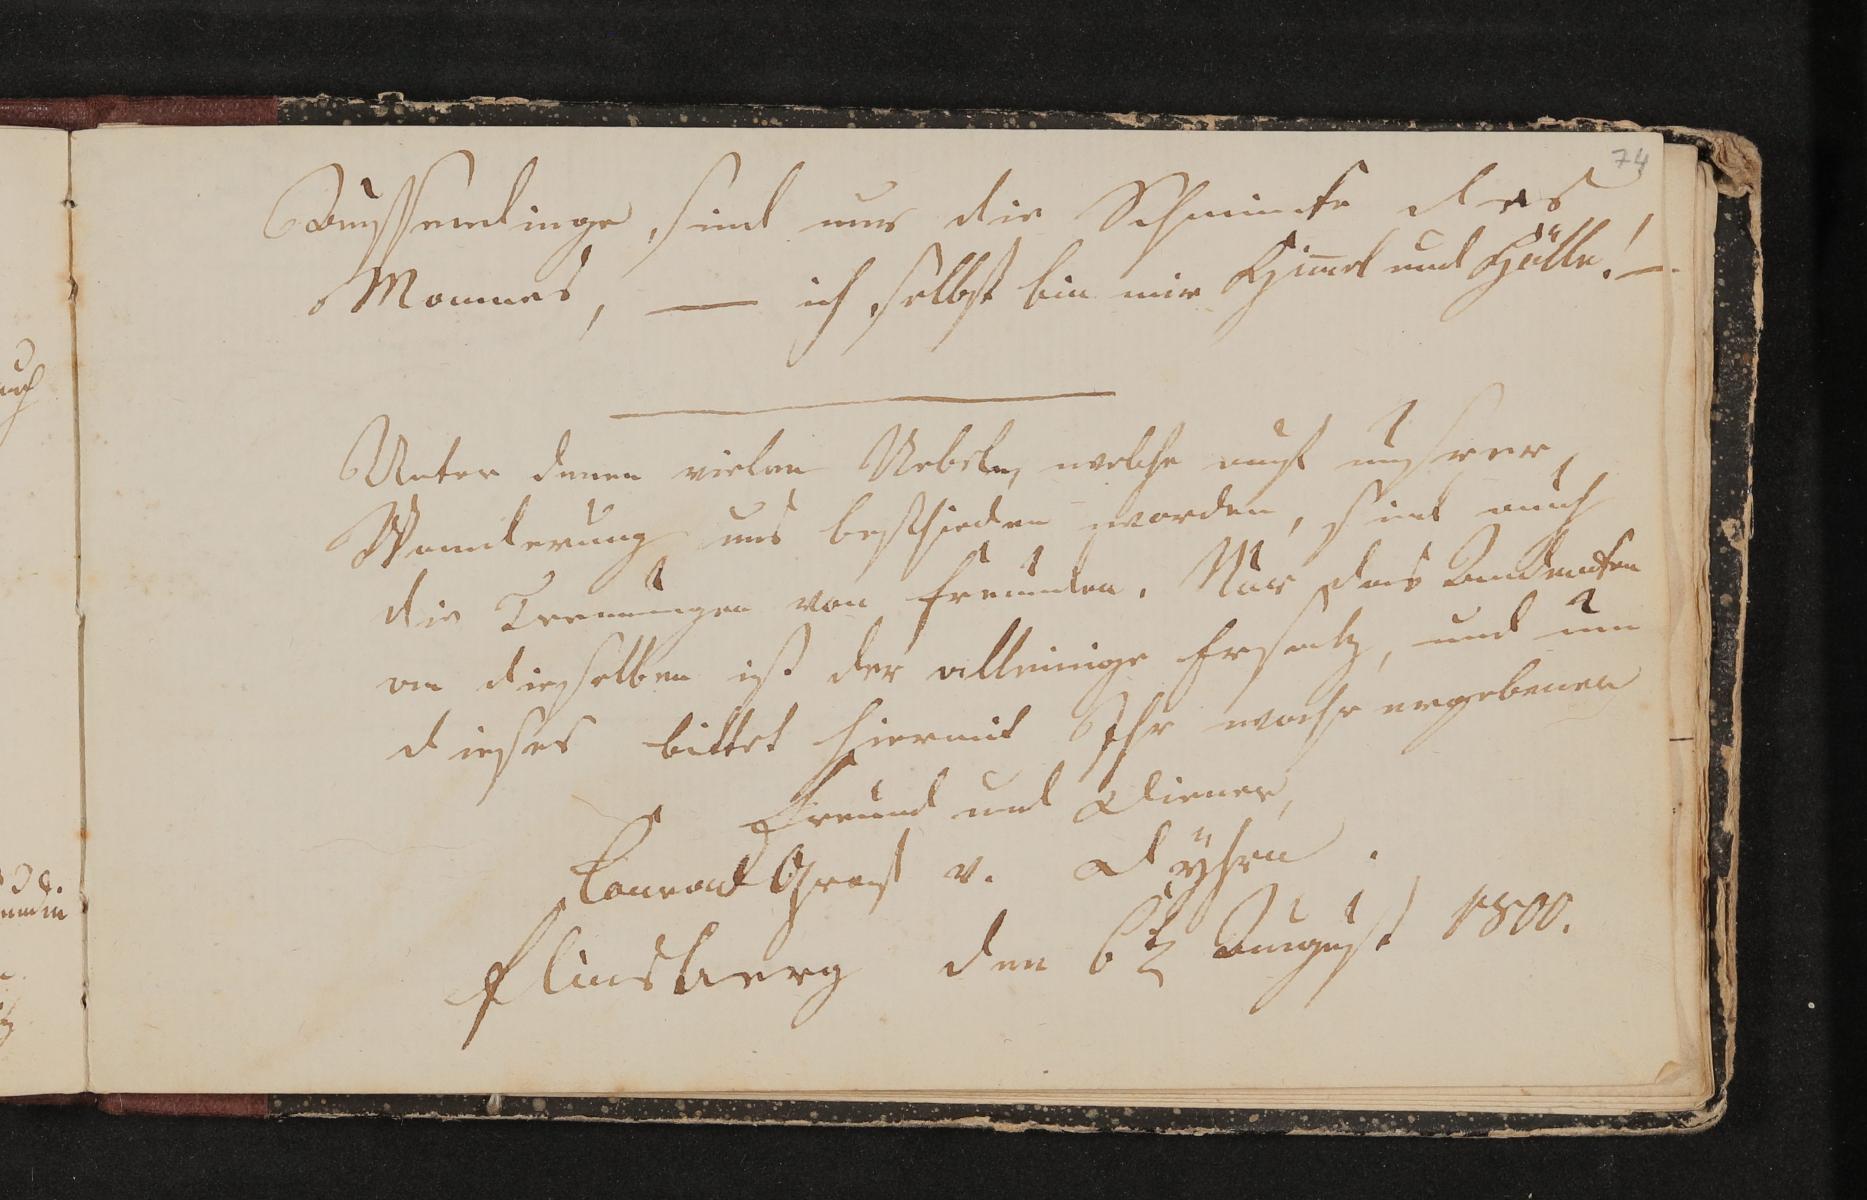 74
Aussendinge, sind nur die Schmincke des
Mannes, — ich selbst bin mir Him̄el und Hölle! —
Unter denen vielen Uebeln, welche auf unsrer
Wanderung uns beschieden worden, sind auch
die Trennungen von Freunden. Nur das Andencken
an dieselben ist der alleinige Ersatz, und um
dieses bittet hiermit Ihr wahr ergebener
Freund und Diener,
Conrad Graf v. Dÿhrn.
Flinsberg den 6t August 1800.